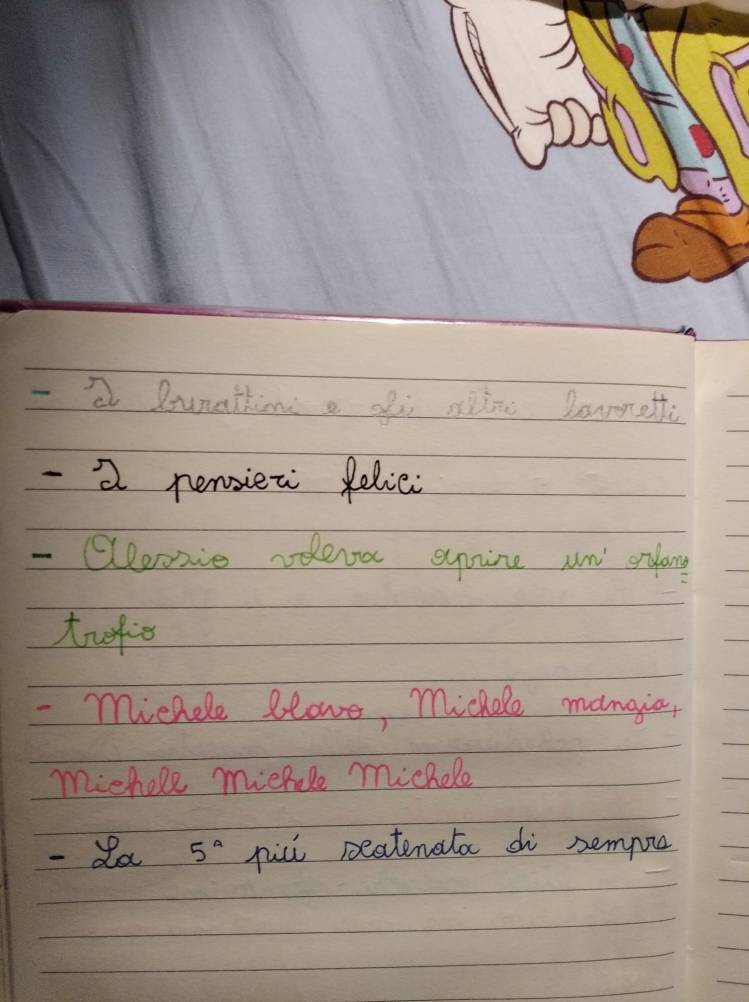 - I burattini e gli altri lavoretti
- I pensieri felici
- Alessio voleva aprire un' orfano
trofio
- Michele blavo, Michele mangia,
Michele Michele Michele
- La 5ª piú scatenata di sempre